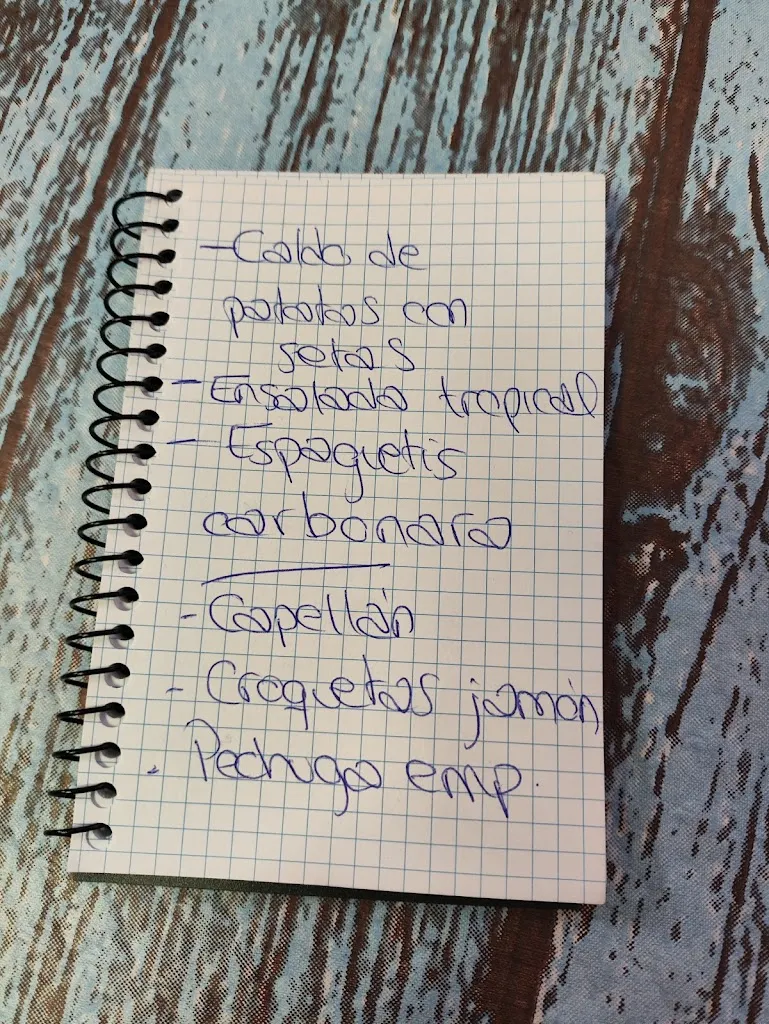 - Caldo de
patatas con
setas
- Ensalada tropical
- Espaguetis
carbonara
- Capellán
- Croquetas jamón
- Pechuga emp.